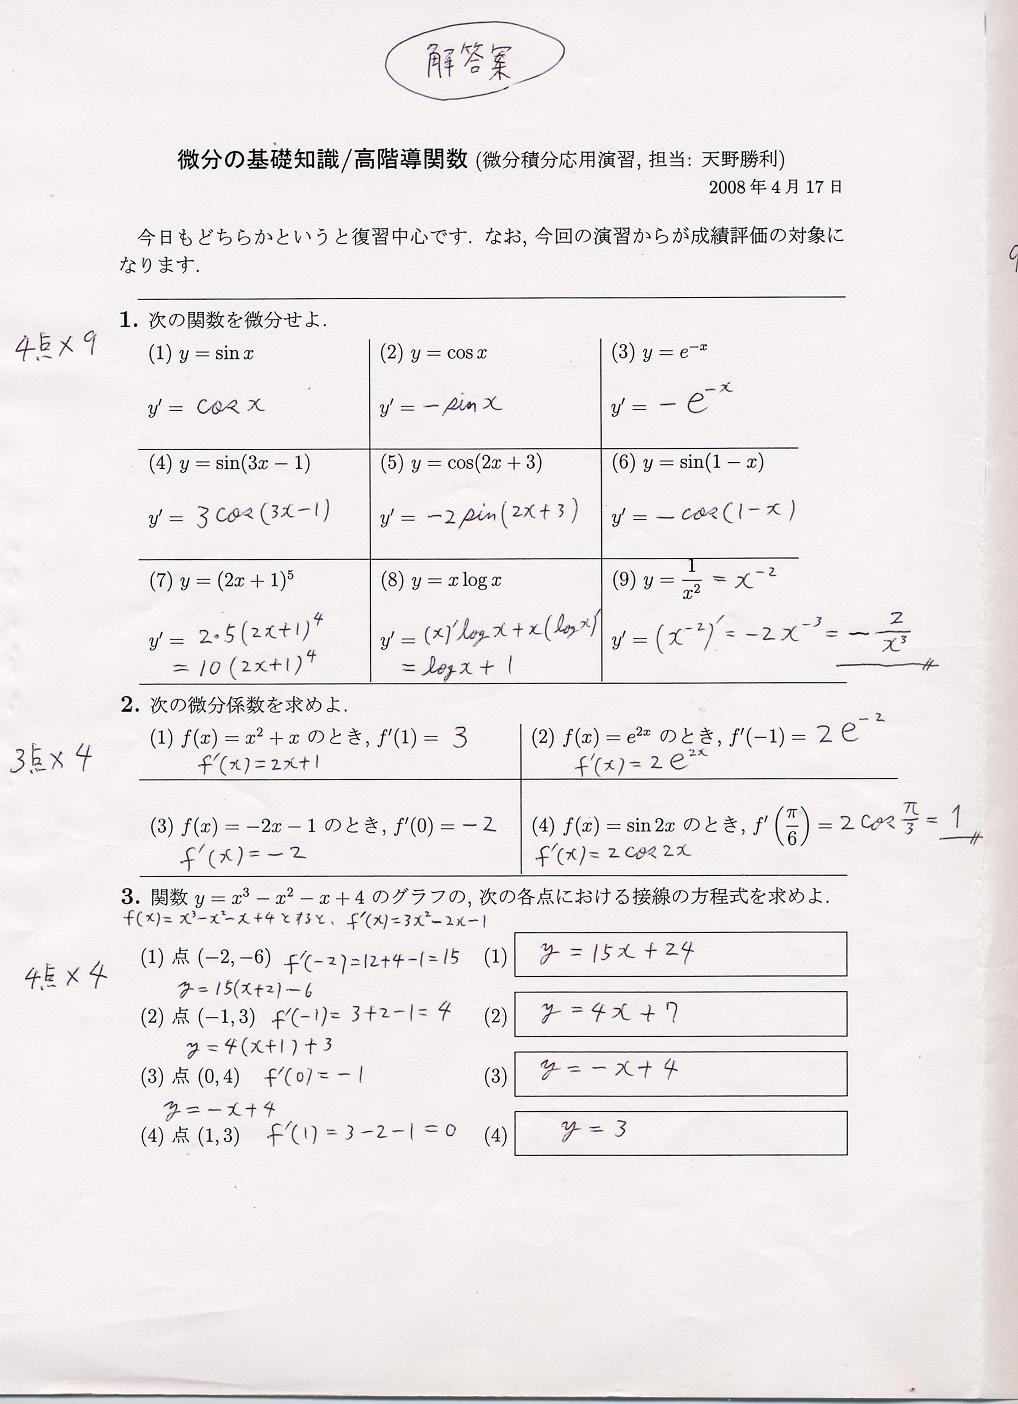 解答案
微分の基礎知識/高階導関数 (微分積分応用演習, 担当: 天野勝利)
2008年4月17日
今日もどちらかというと復習中心です. なお, 今回の演習からが成績評価の対象に
なります.
4点×9
1. 次の関数を微分せよ.
(1) y = sin x
y′ = cos x
(2) y = cos x
y′ = −sin x
(3) y = e^{−x}
y′ = −e^{−x}
(4) y = sin(3x − 1)
y′ = 3cos(3x−1)
(5) y = cos(2x + 3)
y′ = −2sin(2x+3)
(6) y = sin(1 − x)
y′ = −cos(1−x)
(7) y = (2x + 1)^5
y′ = 2・5(2x+1)^4
= 10(2x+1)^4
(8) y = x log x
y′ = (x)′log x + x(log x)′
= log x + 1
(9) y = 1/x^2 = x^{−2}
y′ = (x^{−2})′ = −2x^{−3} = −2/x^3
3点×4
2. 次の微分係数を求めよ.
(1) f(x) = x^2 + x のとき, f′(1) = 3
f′(x)=2x+1
(2) f(x) = e^{2x} のとき, f′(−1) = 2e^{−2}
f′(x)=2e^{2x}
(3) f(x) = −2x − 1 のとき, f′(0) = −2
f′(x)=−2
(4) f(x) = sin 2x のとき, f′(π/6) = 2cos π/3 = 1
f′(x)=2cos2x
3. 関数 y = x^3 − x^2 − x + 4 のグラフの, 次の各点における接線の方程式を求めよ.
f(x)=x^3−x^2−x+4とすると、f′(x)=3x^2−2x−1
4点×4
(1) 点 (−2, −6) f′(−2)=12+4−1=15
y=15(x+2)−6
(1) y=15x+24
(2) 点 (−1, 3) f′(−1)=3+2−1=4
y=4(x+1)+3
(2) y=4x+7
(3) 点 (0, 4) f′(0)=−1
y=−x+4
(3) y=−x+4
(4) 点 (1, 3) f′(1)=3−2−1=0
(4) y=3